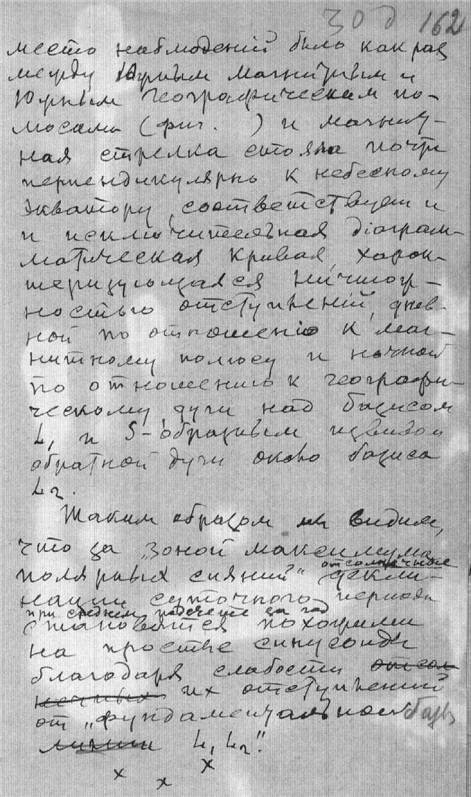 300 162
место наблюдений было как раз
между Южным магнитным и
Южным географическим по-
люсами (фиг. ) и магнит-
ная стрелка стояла почти
перпендикулярно к небесному
экватору, соответствует и
и исключительная діаграм-
матическая кривая, харак-
теризующаяся ничтож-
ностью отступлений, днев-
ной по отношению к маг-
нитному полюсу и ночной
по отношению к географи-
ческому дуги над базисом
L, и S-образным извивом
обратной дуги около базиса
L2.
Таким образом мы видим,
что за „зоной максимума
полярных сияний" отсолнечные
деклинации суточного периода
при среднем подсчете за год
становятся похожими
на простые синусоиды
благодаря слабости
их отступлений
от „фундаментальной базы
L, L2".
x x x